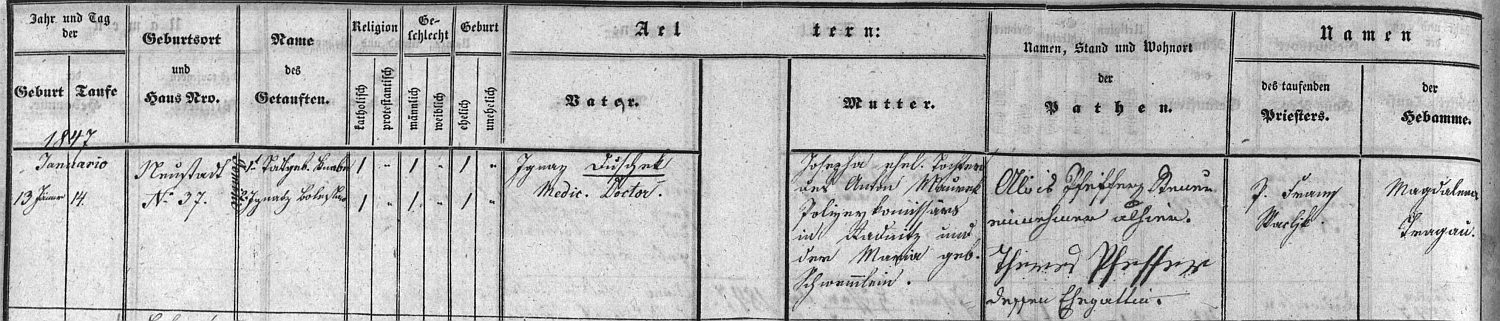 Jahr und Tag
der
Geburt Taufe
Geburtsort
und
Haus Nro.
Name
des
Getauften.
Religion
katholisch
protestantisch
Geschlecht
männlich
weiblich
Geburt
ehelich
unehelich
Aeltern:
Vater.
Mutter.
Namen, Stand und Wohnort
der
Pathen.
Namen
des taufenden
Priesters.
der
Hebamme.
1847
Januario
13 Jäner 14.
Neustadt
No 37.
Knabe
Ignatz
1 " 1 " 1 "
1 " 1 " 1 "
Ignaz Duschek
Medic. Doctor.
Josepha ehel. Tochter
des Anton
in Radnitz und
der Maria geb.
Schwemmlein.
Alois Pfeiffer
einnehmer alhier.
Theres Pfeffer
dessen Ehegattin.
P. Franz
Magdalena
Tragau.